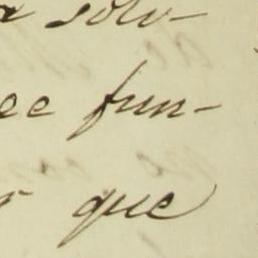 solv-
ee fun-
r que